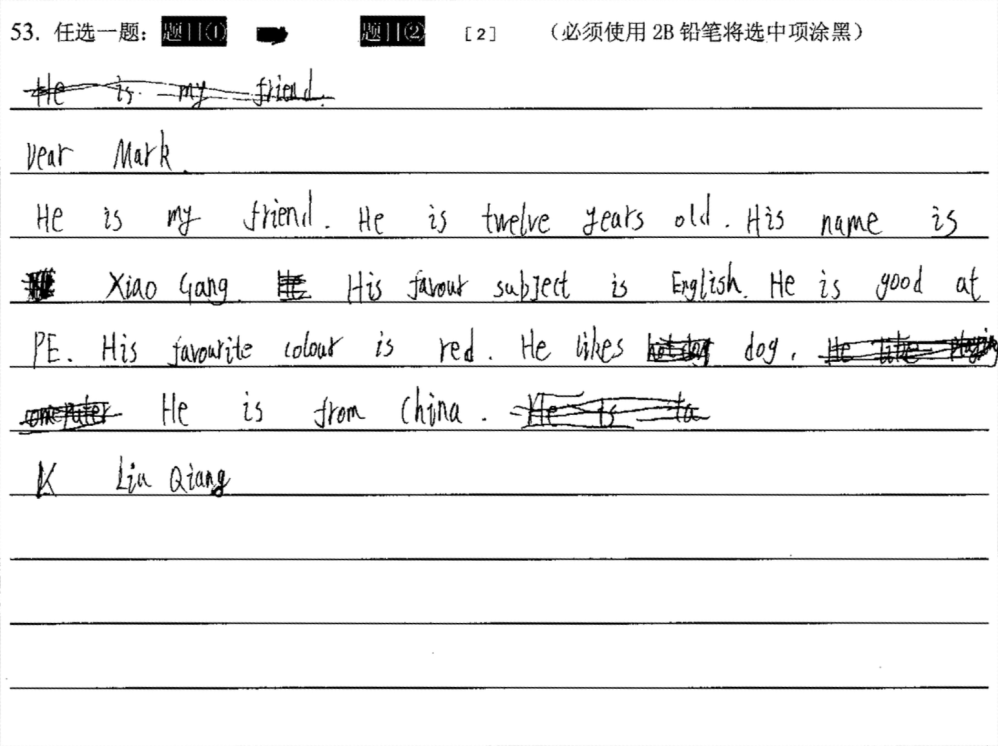 53. 任选一题: 题目① 题目② [2] (必须使用 2B 铅笔将选中项涂黑)
He is my friend.
Dear Mark.
He is my friend. He is twelve years old. His name is
Xiao Gang. He His favour subject is English. He is good at
PE. His favourite colour is red. He likes hot dog dog, He like playing
computer He is from China. He is ta
K Liu Qiang